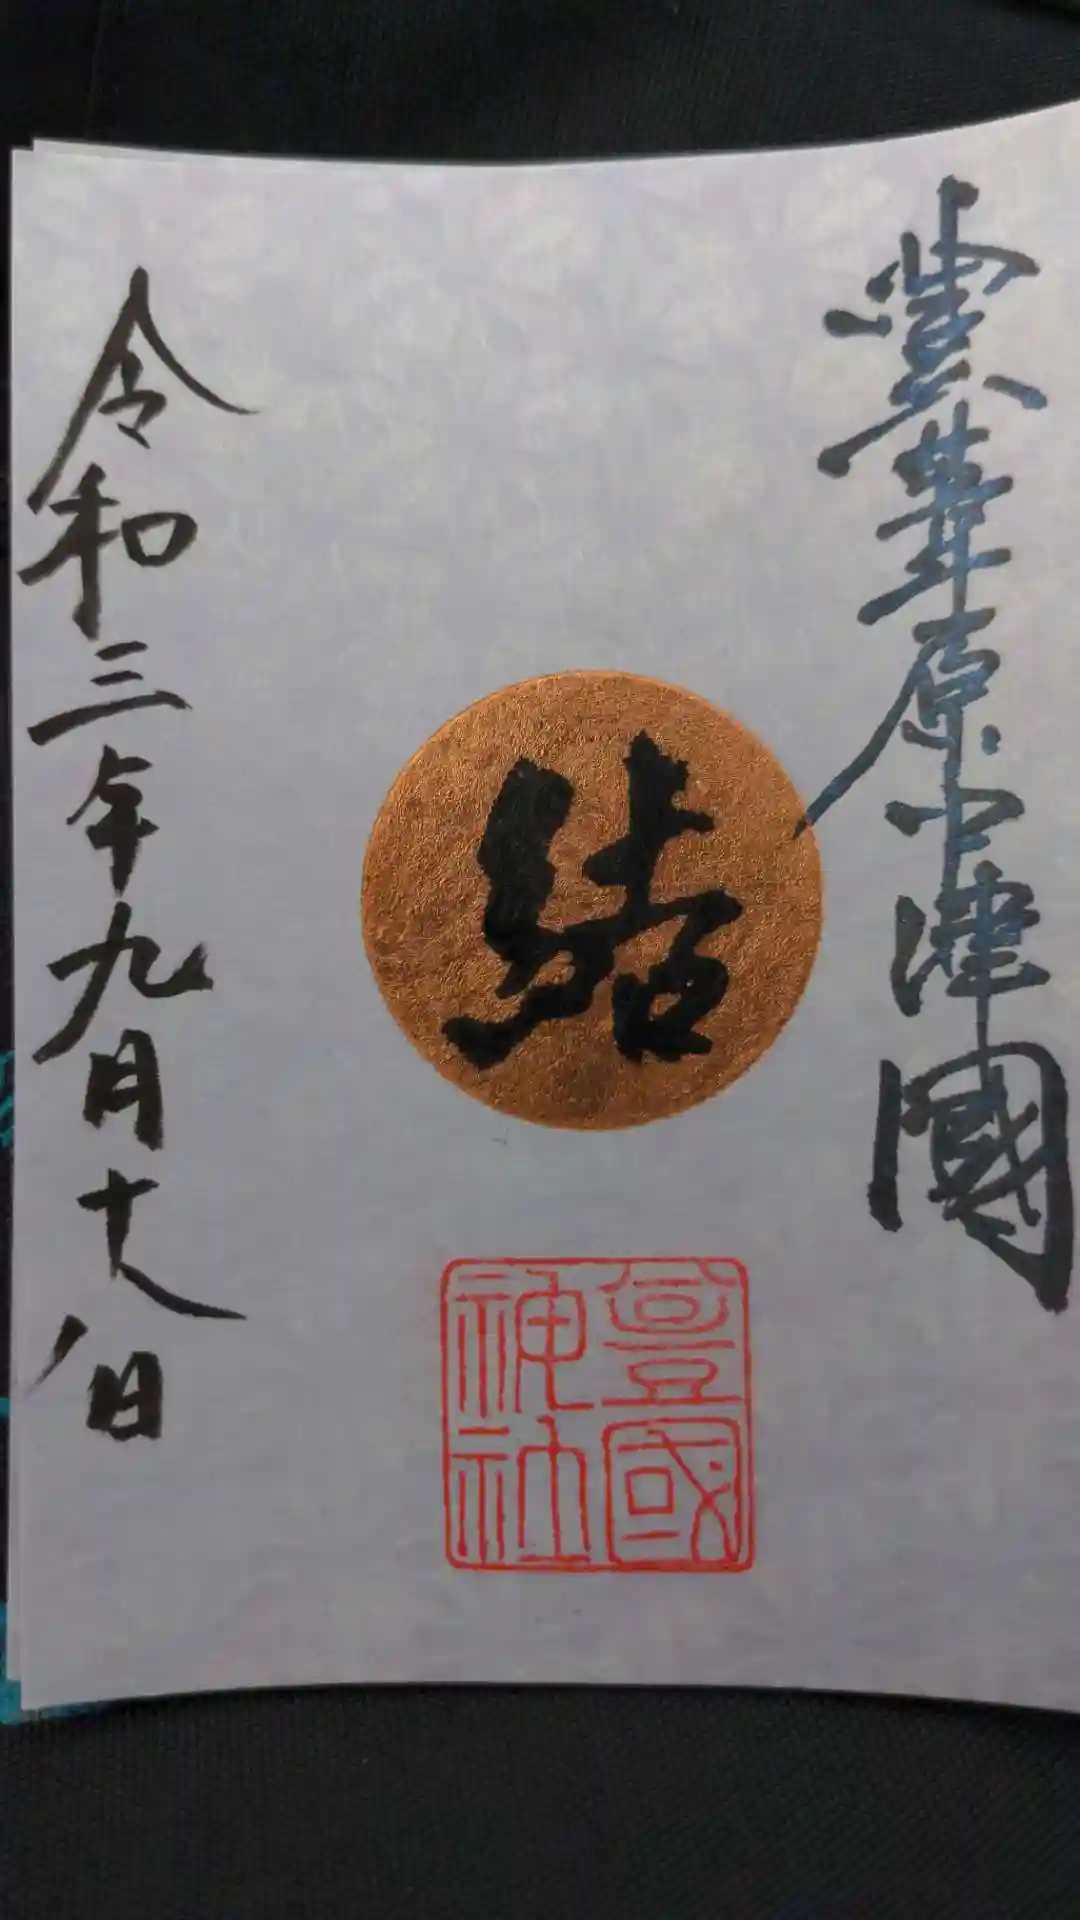 豊葦原中津國
結
豊國神社
令和三年九月十八日